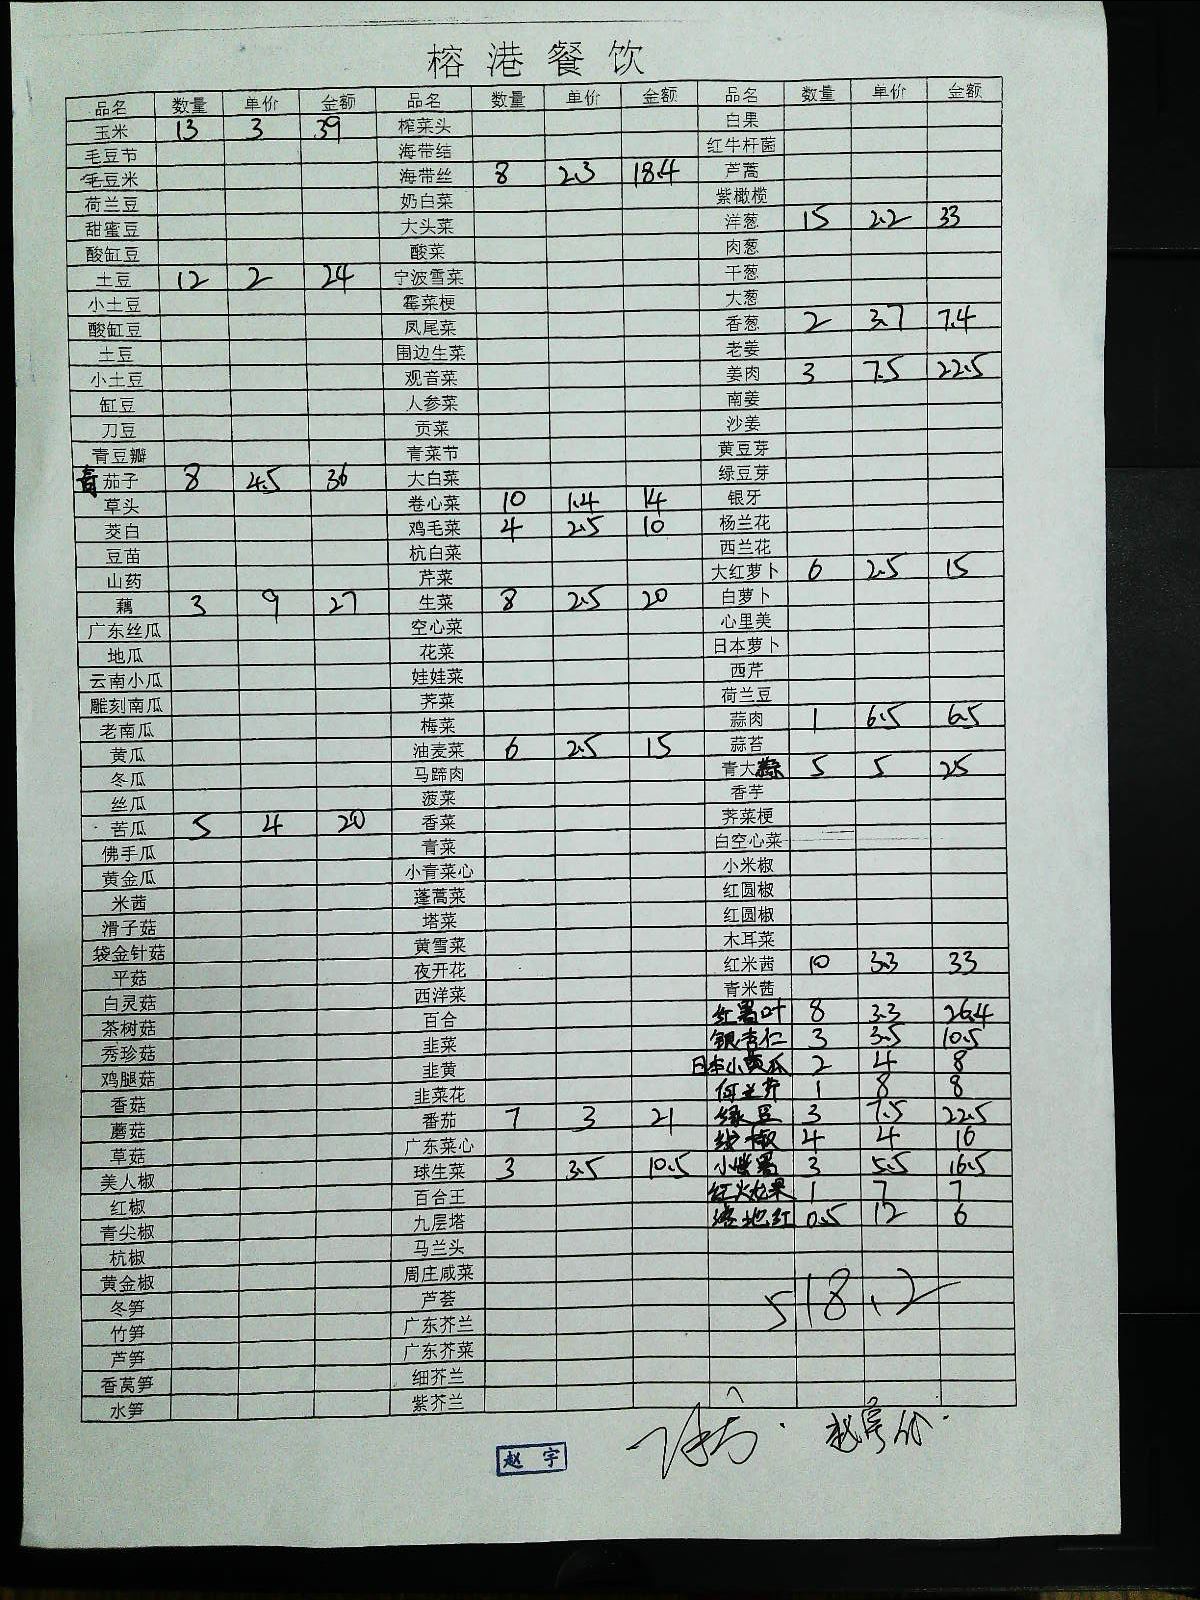 榕港餐饮
品名 数量 单价 金额 品名 数量 单价 金额 品名 数量 单价 金额
玉米 13 3 39 榨菜头 白果
毛豆节 海带结 红牛杆菌
毛豆米 海带丝 8 2.3 18.4 芦蒿
荷兰豆 奶白菜 紫橄榄
甜蜜豆 大头菜 洋葱 15 2.2 33
酸缸豆 酸菜 肉葱
土豆 12 2 24 宁波雪菜 干葱
小土豆 霉菜梗 大葱
酸缸豆 凤尾菜 香葱 2 3.7 7.4
土豆 围边生菜 老姜
小土豆 观音菜 姜肉 3 7.5 22.5
缸豆 人参菜 南姜
刀豆 贡菜 沙姜
青豆瓣 青菜节 黄豆芽
青茄子 8 4.5 36 大白菜 绿豆芽
草头 卷心菜 10 1.4 14 银牙
茭白 鸡毛菜 4 2.5 10 杨兰花
豆苗 杭白菜 西兰花
山药 芹菜 大红萝卜 6 2.5 15
藕 3 9 27 生菜 8 2.5 20 白萝卜
广东丝瓜 空心菜 心里美
地瓜 花菜 日本萝卜
云南小瓜 娃娃菜 西芹
雕刻南瓜 荠菜 荷兰豆
老南瓜 梅菜 蒜肉 1 6.5 6.5
黄瓜 油麦菜 6 2.5 15 蒜苔
冬瓜 马蹄肉 青大蒜 5 5 25
丝瓜 菠菜 香芋
苦瓜 5 4 20 香菜 荠菜梗
佛手瓜 青菜 白空心菜
黄金瓜 小青菜心 小米椒
米茜 蓬蒿菜 红圆椒
滑子菇 塔菜 红圆椒
袋金针菇 黄雪菜 木耳菜
平菇 夜开花 红米茜 10 3.3 33
白灵菇 西洋菜 青米茜
茶树菇 百合 红薯叶 8 3.3 26.4
秀珍菇 韭菜 银杏仁 3 3.5 10.5
鸡腿菇 韭黄 日本小黄瓜 2 4 8
香菇 韭菜花 何兰芹 1 8 8
蘑菇 番茄 7 3 21 绿豆 3 7.5 22.5
草菇 广东菜心 线椒 4 4 16
美人椒 球生菜 3 3.5 10.5 小紫薯 3 5.5 16.5
红椒 百合王 红火龙果 1 7 7
青尖椒 九层塔 地红 0.5 12 6
杭椒 马兰头
黄金椒 周庄咸菜
冬笋 芦荟 518.2
竹笋 广东芥兰
芦笋 广东芥菜
香莴笋 细芥兰
水笋 紫芥兰
赵宇